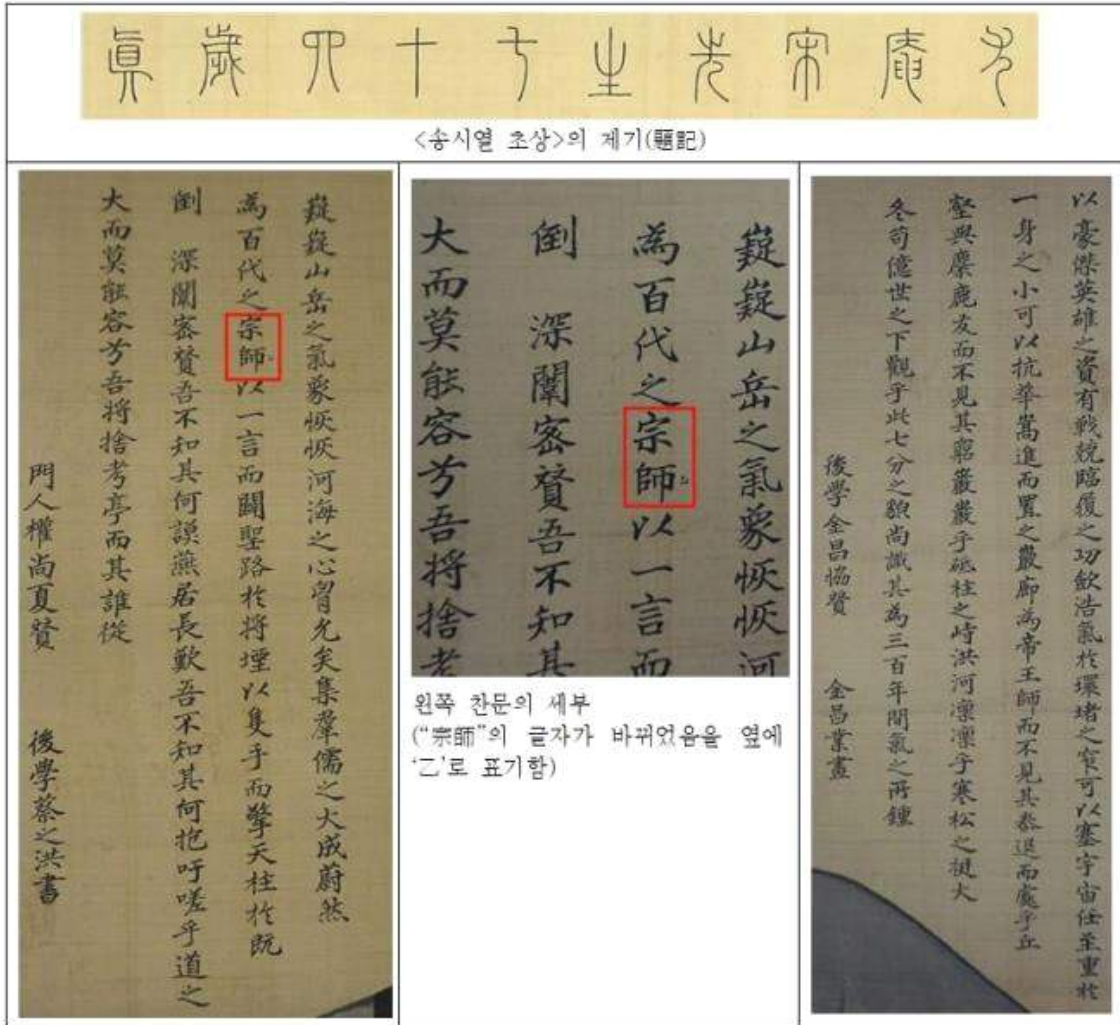 尤庵宋先生七十四歲眞
<송시열 초상>의 제기(題記)
嶷嶷山岳之氣象恢恢河海之心胷允矣集羣儒之大成蔚然
為百代之宗師乙以一言而闢聖路於將堙以隻手而擎天柱於既
倒 深闈密贊吾不知其何謨燕居長歎吾不知其何抱吁嗟乎道之
大而莫能容兮吾將捨考亭而其誰從
門人權尚夏贊 後學蔡之洪書
嶷嶷山岳之氣象恢恢河
為百代之宗師乙以一言而
倒 深闈密贊吾不知其
大而莫能容兮吾將捨考
왼쪽 찬문의 세부
("宗師"의 글자가 바뀌었음을 옆에
'乙'로 표기함)
以豪傑英雄之資有戰兢臨履之功斂浩氣於環堵之窄可以塞宇宙任至重於
一身之小可以抗華嵩進而置之巖廊為帝王師而不見其泰退而處乎丘
壑與麋鹿友而不見其窮巖巖乎砥柱之峙洪河凜凜乎寒松之挺大
冬苟億世之下觀乎此七分之貌尚識其為三百年間氣之所鍾
後學金昌協贊 金昌業畫